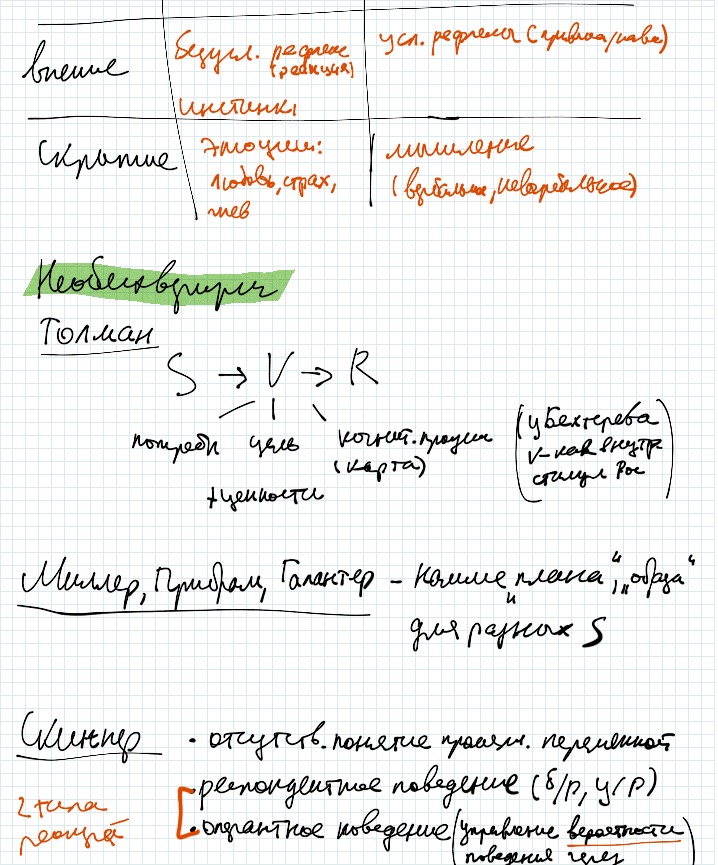 внешние
безусл. рефлекс
(реакция)
инстинкт
усл. рефлексы (привычка/навык)
Скрытые
Эмоции:
любовь, страх,
гнев
мышление
(вербальное, невербальное)
Необихевиоризм
Толман
S → V → R
потребн цель когнит. процессы
(карта)
+ценности
(у Бехтерева
V-как внутр
стимул Рос)
Миллер, Прибрам, Галантер - "плана", "образа"
для разных S
Скиннер
• отсутств. понятие промеж. переменной
2 типа
реакций
• респондентное поведение (б/р, у/р)
• оперантное поведение (управление вероятности
поведения через